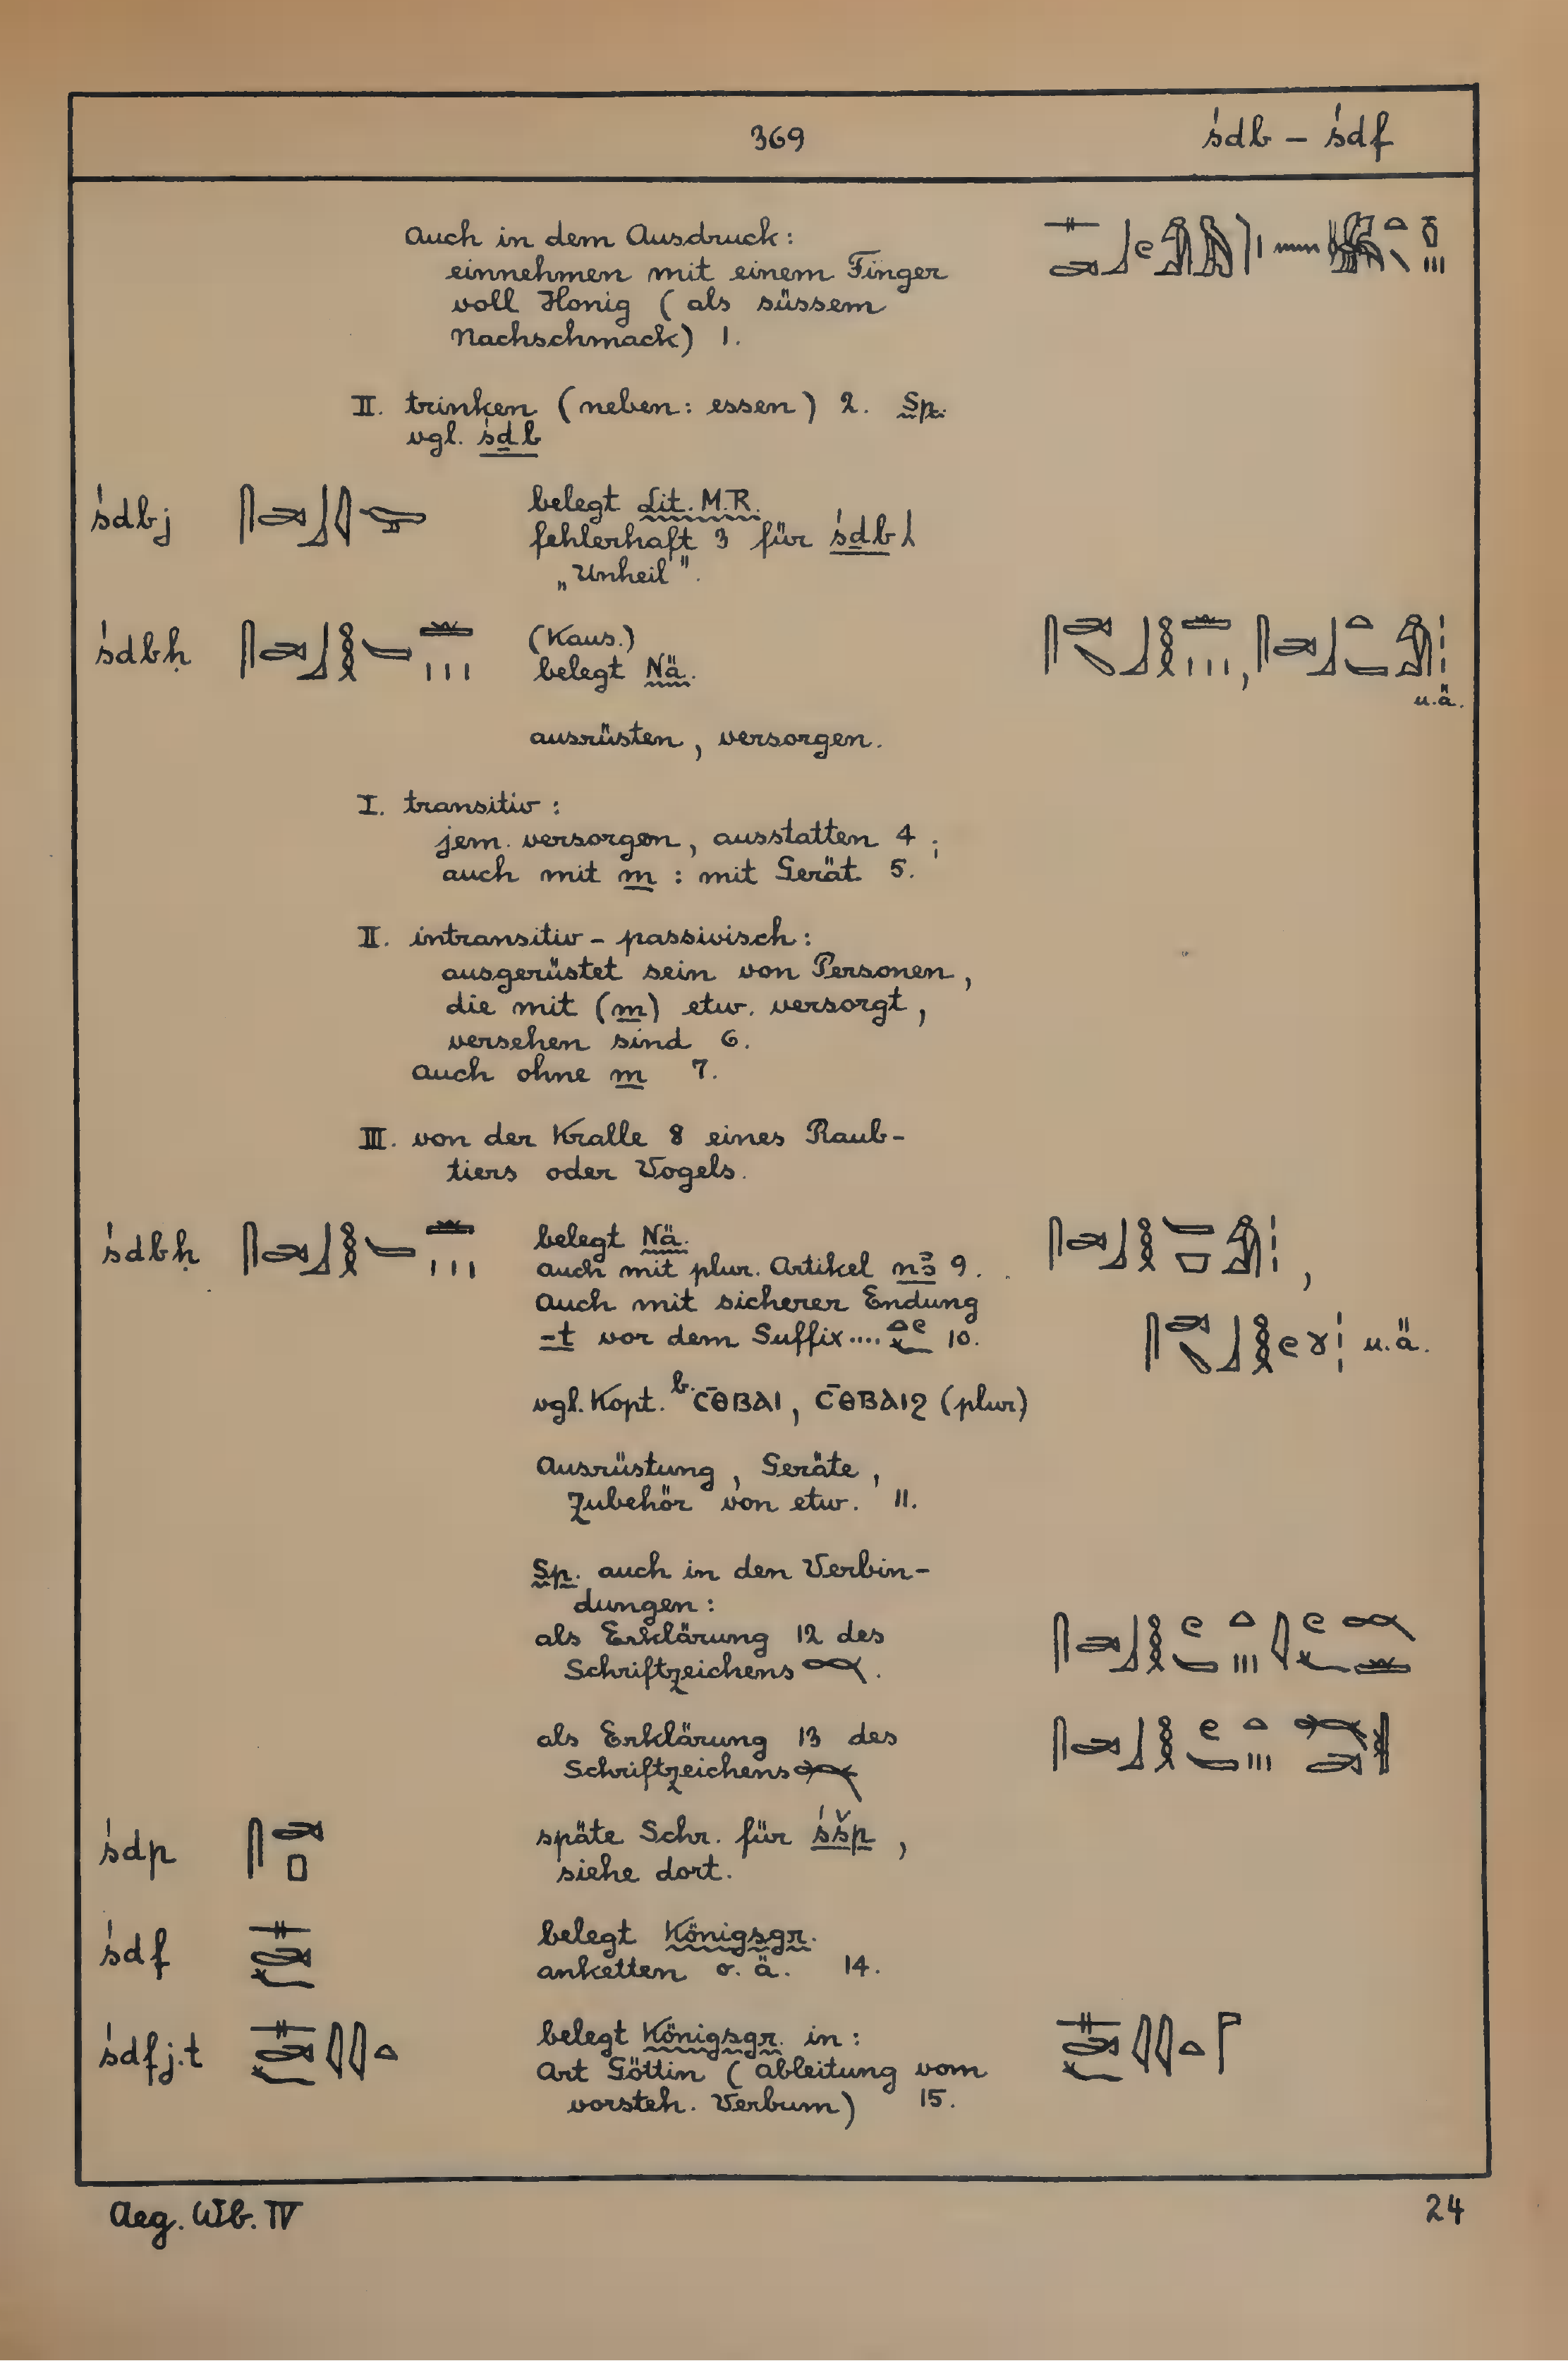 369 śdb – śdf
Auch in dem Ausdruck:
einnehmen mit einem Finger
voll Honig (als süssem
Nachschmack) 1.
II. trinken (neben: essen) 2. Sp.
vgl. śdb
śdbj belegt Lit. M.R.
fehlerhaft 3 für śdb
„Unheil".
śdbḥ (Kaus.)
belegt Nä.
u.ä.
ausrüsten, versorgen.
I. transitiv:
jem. versorgen, ausstatten 4;
auch mit m : mit Gerät 5.
II. intransitiv – passivisch:
ausgerüstet sein von Personen,
die mit (m) etw. versorgt,
versehen sind 6.
auch ohne m 7.
III. von der Kralle 8 eines Raub-
tiers oder Vogels.
śdbḥ belegt Nä.
auch mit plur. Artikel nꜣ 9.
Auch mit sicherer Endung
-t vor dem Suffix.... 10. u.ä.
vgl. Kopt. b. ⲥ̄ⲑⲃⲁⲓ, ⲥ̄ⲑⲃⲁⲓϩ (plur)
Ausrüstung, Geräte,
Zubehör von etw. 11.
Sp. auch in den Verbin-
dungen:
als Erklärung 12 des
Schriftzeichens .
als Erklärung 13 des
Schriftzeichens
śdp späte Schr. für śšp,
siehe dort.
śdf belegt Königsgr.
anketten o. ä. 14.
śdfj.t belegt Königsgr. in:
Art Göttin (Ableitung vom
vorsteh. Verbum) 15.
Aeg. Wb. IV 24